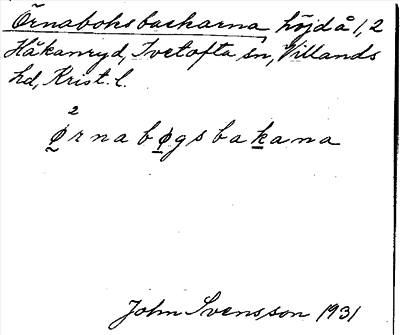 Örnabohsbackarna höjd å 1,2
Håkanryd, Ivetofta sn, Villands
hd, Krist. l.
2
ø̰rnabø̲gsbak̲ana
John Svensson 1931